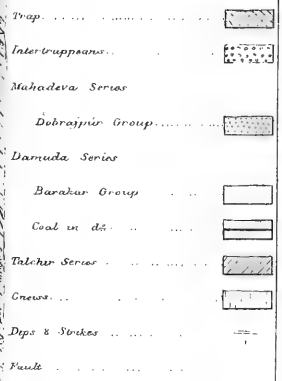 Trap
Intertrappeans
Mahadeva Series
Dubrajpur Group
Damuda Series
Barakar Group
Coal in do.
Talchir Series
Gneiss
Dips & Strikes
Fault